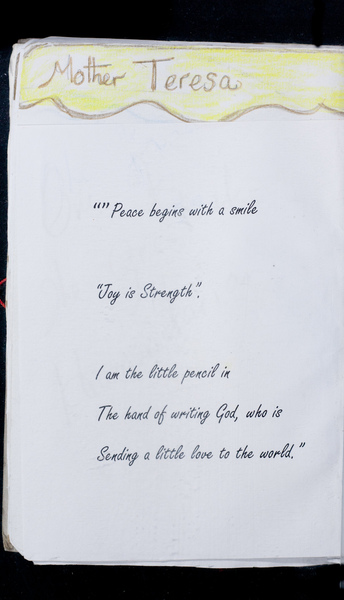 Mother Teresa
“” Peace begins with a smile
“Joy is Strength”.
I am the little pencil in
The hand of writing God, who is
Sending a little love to the world.”